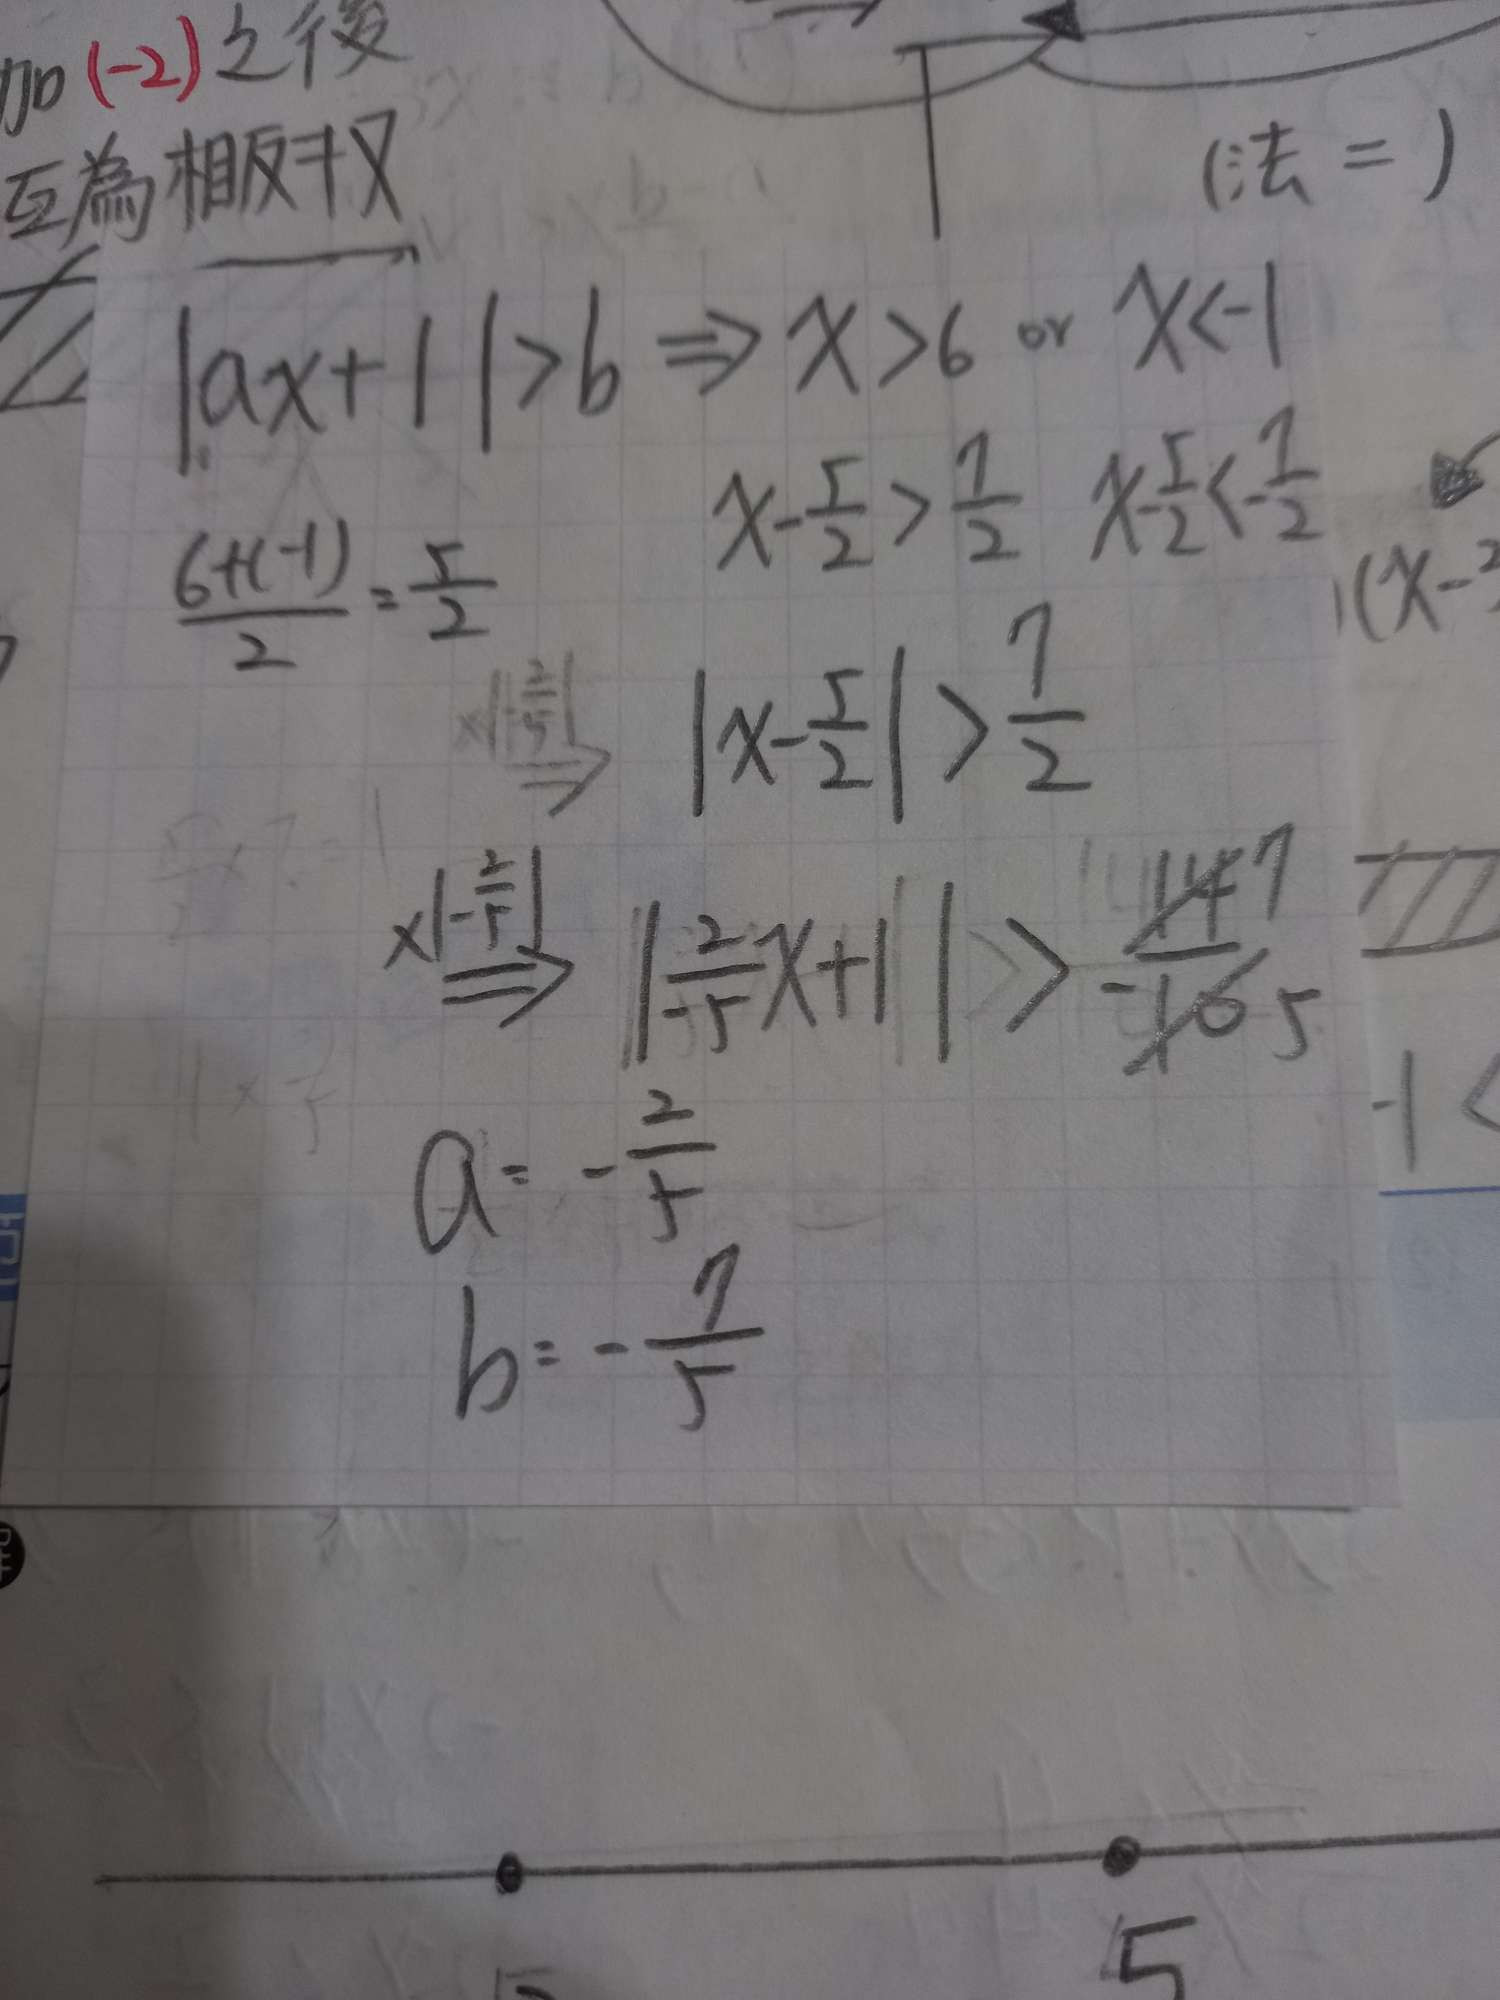 加(-2)之後
互為相反数
(法=)
|ax+1|>b ⇒ x>6 or x<-1
x-5/2>7/2 x-5/2<-7/2
(6+(-1))/2=5/2
(x-
×|-2/5|
⇒ |x-5/2|>7/2
×|-2/5|
⇒ |2/-5 x+1|> 7/-5
-1<
a=-2/5
b=-7/5
5